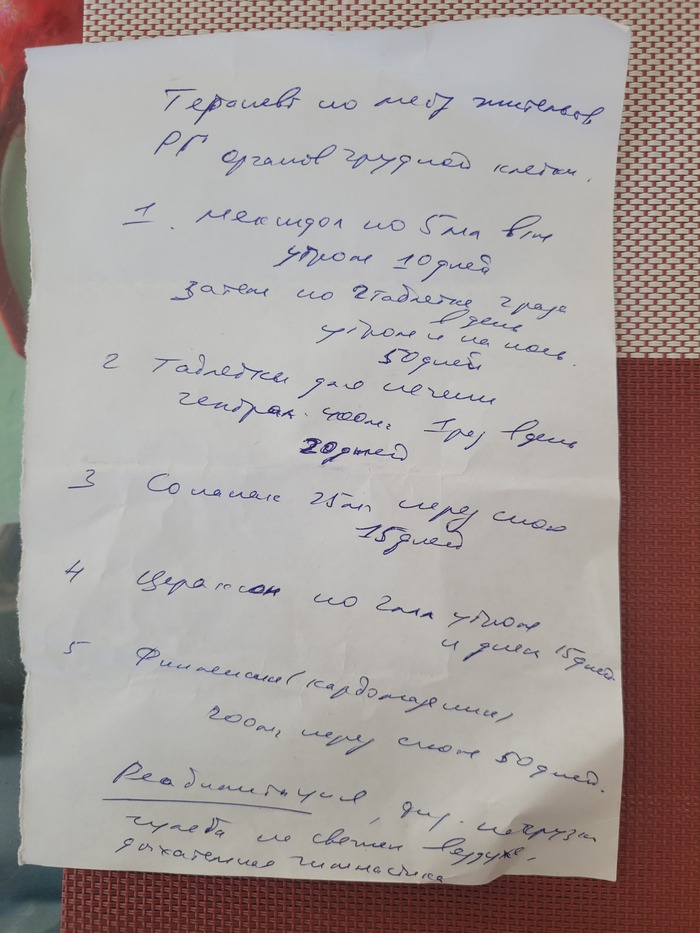 Терапевт по месту жительств
РГ органов грудной клетки.
1. Мексидол по 5 мл в/м
утром 10 дней
Затем по 2 таблетке 2 раза
в день
утром и на ночь.
50 дней
2 Таблетки для печени
гептрал 400мг 1 раз в день
20 дней
3 Сонапакс 25мг перед сном
15 дней
4 Цераксон по 2 мл утром
и днем 15 дней
5 Финлепсин (карбамазепин)
200мг перед сном 50 дней.
Реабилитация, физ. нагрузки
на свежем воздухе,
дыхательная гимнастика